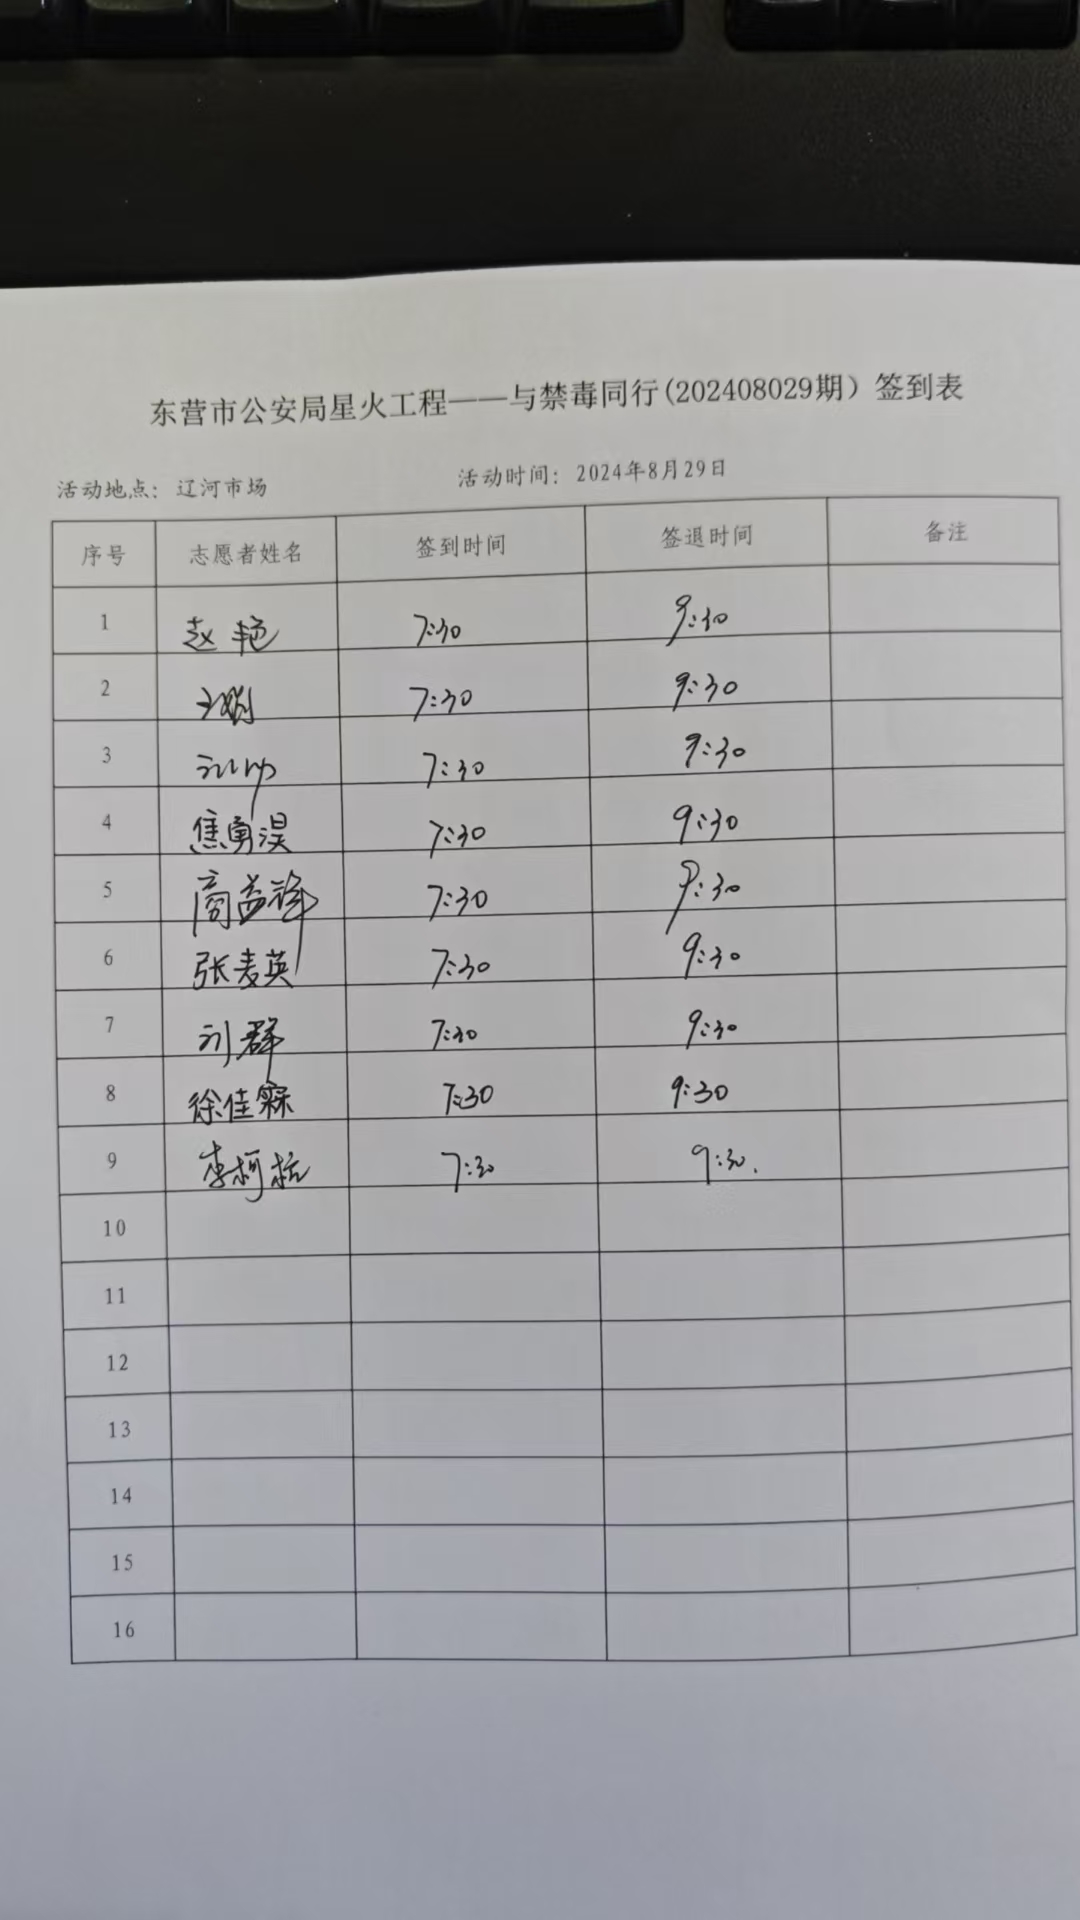 东营市公安局星火工程——与禁毒同行(202408029期）签到表
活动地点：辽河市场 活动时间：2024年8月29日
序号 志愿者姓名 签到时间 签退时间 备注
1 赵艳 7:30 9:30
2 7:30 9:30
3 7:30 9:30
4 焦勇淏 7:30 9:30
5 商益 7:30 9:30
6 张麦英 7:30 9:30
7 刘群 7:30 9:30
8 徐佳霖 7:30 9:30
9 李柯杭 7:30 9:30.
10
11
12
13
14
15
16